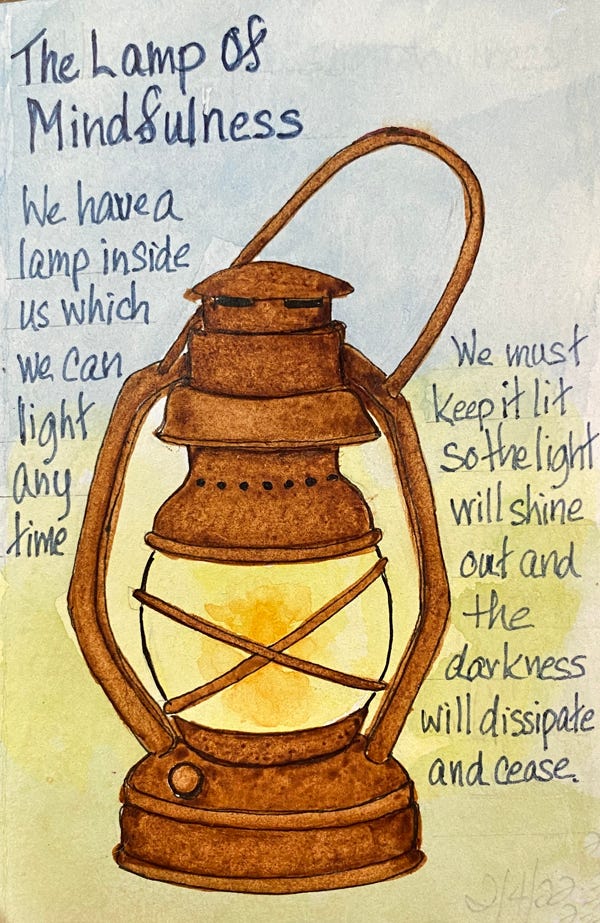 The Lamp Of
Mindfulness
We have a
lamp inside
us which
we can
light
any
time
We must
keep it lit
so the light
will shine
out and
the
darkness
will dissipate
and cease.
2/4/22